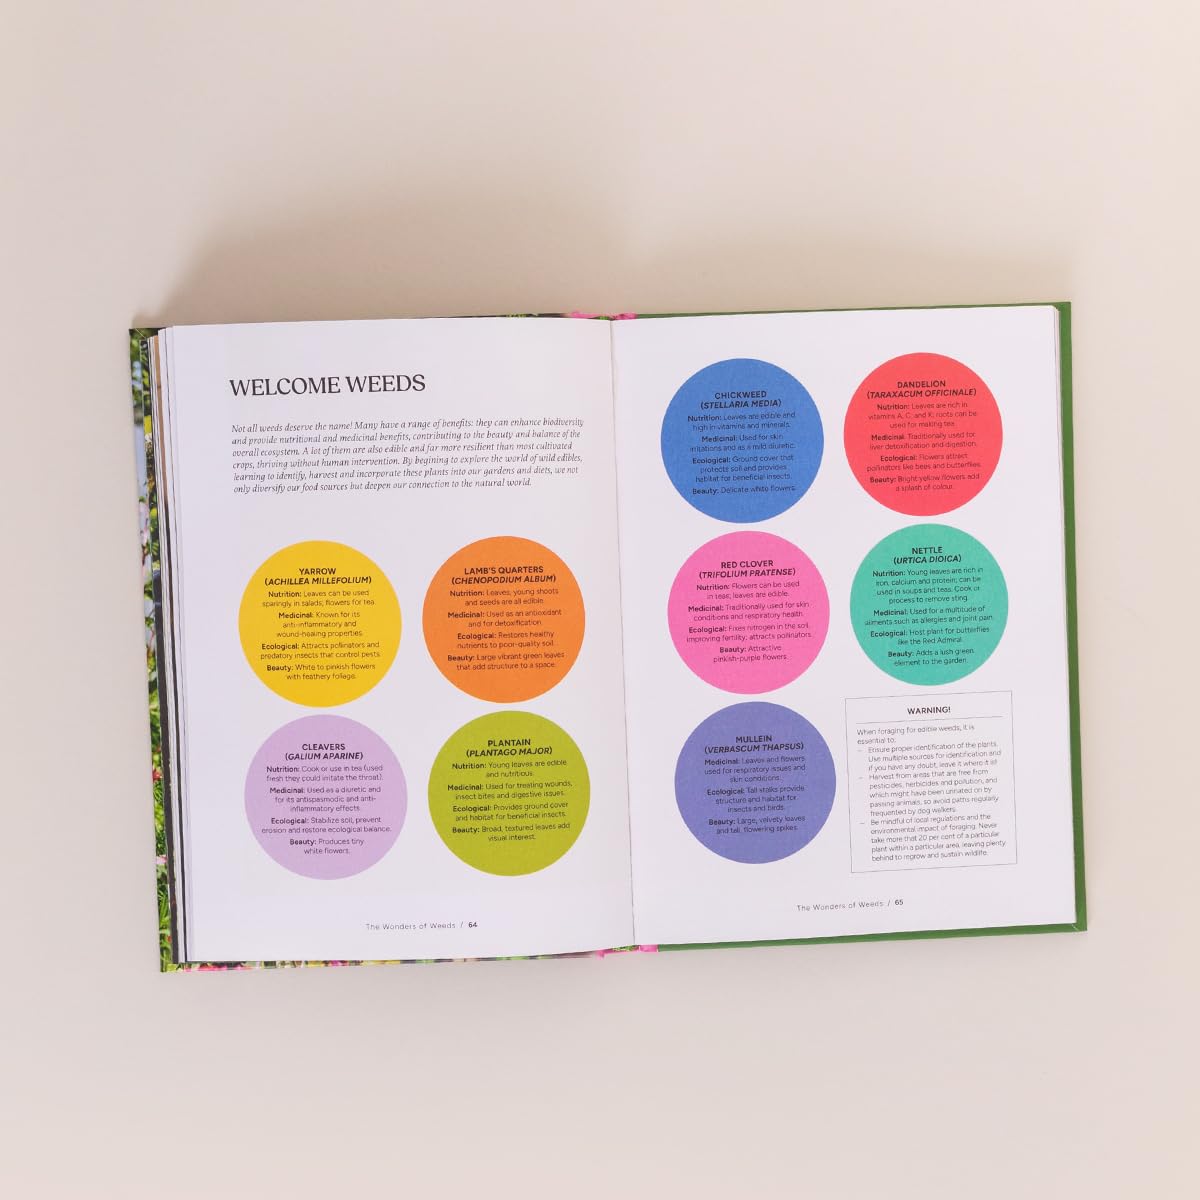 WELCOME WEEDS
Not all weeds deserve the name! Many have a range of benefits: they can enhance biodiversity
and provide nutritional and medicinal benefits, contributing to the beauty and balance of the
overall ecosystem. A lot of them are also edible and far more resilient than most cultivated
crops, thriving without human intervention. By begining to explore the world of wild edibles,
learning to identify, harvest and incorporate these plants into our gardens and diets, we not
only diversify our food sources but deepen our connection to the natural world.
YARROW
(ACHILLEA MILLEFOLIUM)
Nutrition: Leaves can be used
sparingly in salads; flowers for tea.
Medicinal: Known for its
anti-inflammatory and
wound-healing properties.
Ecological: Attracts pollinators and
predatory insects that control pests.
Beauty: White to pinkish flowers
with feathery foliage.
LAMB'S QUARTERS
(CHENOPODIUM ALBUM)
Nutrition: Leaves, young shoots
and seeds are all edible.
Medicinal: Used as an antioxidant
and for detoxification.
Ecological: Restores healthy
nutrients to poor-quality soil.
Beauty: Large vibrant green leaves
that add structure to a space.
CLEAVERS
(GALIUM APARINE)
Nutrition: Cook or use in tea (used
fresh they could irritate the throat).
Medicinal: Used as a diuretic and
for its antispasmodic and anti-
inflammatory effects.
Ecological: Stabilize soil, prevent
erosion and restore ecological balance.
Beauty: Produces tiny
white flowers.
PLANTAIN
(PLANTAGO MAJOR)
Nutrition: Young leaves are edible
and nutritious.
Medicinal: Used for treating wounds,
insect bites and digestive issues.
Ecological: Provides ground cover
and habitat for beneficial insects.
Beauty: Broad, textured leaves add
visual interest.
The Wonders of Weeds / 64
CHICKWEED
(STELLARIA MEDIA)
Nutrition: Leaves are edible and
high in vitamins and minerals.
Medicinal: Used for skin
irritations and as a mild diuretic.
Ecological: Ground cover that
protects soil and provides
habitat for beneficial insects.
Beauty: Delicate white flowers.
DANDELION
(TARAXACUM OFFICINALE)
Nutrition: Leaves are rich in
vitamins A, C, and K; roots can be
used for making tea.
Medicinal: Traditionally used for
liver detoxification and digestion.
Ecological: Flowers attract
pollinators like bees and butterflies.
Beauty: Bright yellow flowers add
a splash of colour.
RED CLOVER
(TRIFOLIUM PRATENSE)
Nutrition: Flowers can be used
in teas; leaves are edible.
Medicinal: Traditionally used for skin
conditions and respiratory health.
Ecological: Fixes nitrogen in the soil,
improving fertility; attracts pollinators.
Beauty: Attractive
pinkish-purple flowers.
NETTLE
(URTICA DIOICA)
Nutrition: Young leaves are rich in
iron, calcium and protein; can be
used in soups and teas. Cook or
process to remove sting.
Medicinal: Used for a multitude of
ailments such as allergies and joint pain.
Ecological: Host plant for butterflies
like the Red Admiral.
Beauty: Adds a lush green
element to the garden.
MULLEIN
(VERBASCUM THAPSUS)
Medicinal: Leaves and flowers
used for respiratory issues and
skin conditions.
Ecological: Tall stalks provide
structure and habitat for
insects and birds.
Beauty: Large, velvety leaves
and tall, flowering spikes.
WARNING!
When foraging for edible weeds, it is
essential to:
– Ensure proper identification of the plants.
Use multiple sources for identification and
if you have any doubt, leave it where it is!
– Harvest from areas that are free from
pesticides, herbicides and pollution, and
which might have been urinated on by
passing animals, so avoid paths regularly
frequented by dog walkers.
– Be mindful of local regulations and the
environmental impact of foraging. Never
take more that 20 per cent of a particular
plant within a particular area, leaving plenty
behind to regrow and sustain wildlife.
The Wonders of Weeds / 65